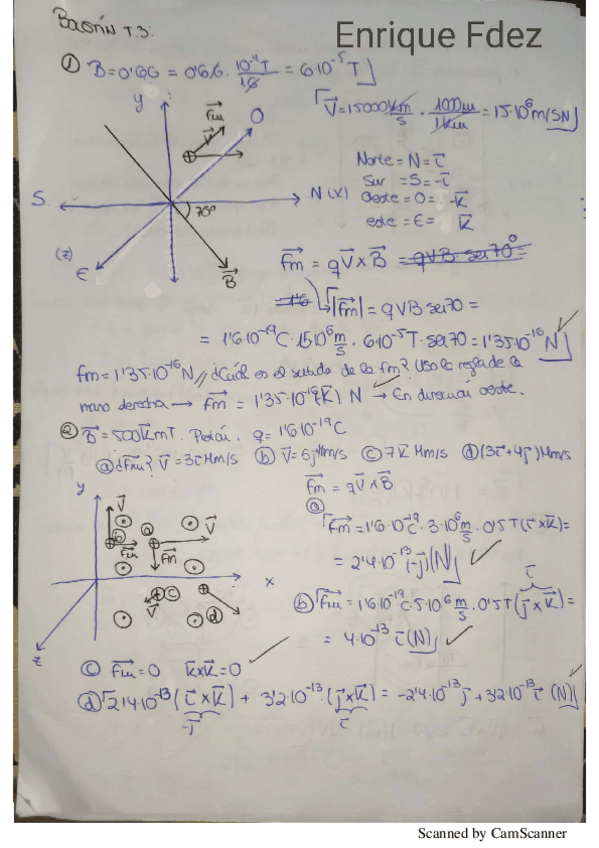 BOLETÍN T.3: Enrique Fdez
① B=0'6G = 0'6G · 10⁻⁴T/1G = 6·10⁻⁵ T
V⃗=15000 km/s · 1000m/1km = 15·10⁶ m/s N
y Fm⃗ V⃗ O
Norte = N = i⃗
Sur = S = -i⃗
S N (x) Oeste = O = -k⃗
70º este = E = k⃗
(z) E B⃗
Fm⃗ = qV⃗xB⃗ = qVB·sen70º =
|Fm⃗| = qVB·sen70 =
= 1'6·10⁻¹⁹C·15·10⁶ m/s · 6·10⁻⁵T·sen70 = 1'35·10⁻¹⁶ N
fm = 1'35·10⁻¹⁶ N // ¿Cuál es el sentido de la fm? Uso la regla de la
mano derecha → Fm⃗ = 1'35·10⁻¹⁶(-k⃗) N → En dirección oeste.
② B⃗ = 500k⃗ mT. Protón. q = 1'6·10⁻¹⁹C
ⓐ ¿Fm⃗? V⃗ = 3i⃗ Mm/s ⓑ V⃗ = 5j⃗ Mm/s ⓒ 7k⃗ Mm/s ⓓ (3i⃗+4j⃗) Mm/s
Fm⃗ = qV⃗xB⃗
y V⃗ ⓐ V⃗ ⓑ Fm⃗ Fm⃗ V⃗ ⓒ ⓓ x z
ⓐ
Fm⃗ = 1'6·10⁻¹⁹C · 3·10⁶ m/s · 0'5T (i⃗xk⃗) =
= 2'4·10⁻¹³ (-j⃗) (N)
i⃗
ⓑ Fm⃗ = 1'6·10⁻¹⁹C·5·10⁶ m/s · 0'5T (j⃗xk⃗) =
= 4·10⁻¹³ i⃗ (N)
ⓒ Fm⃗ = 0 k⃗xk⃗ = 0
ⓓ 2'4·10⁻¹³ (i⃗xk⃗) + 3'2·10⁻¹³ · (j⃗xk⃗) = -2'4·10⁻¹³ j⃗ + 3'2·10⁻¹³ i⃗ (N)
-j⃗ i⃗
Scanned by CamScanner